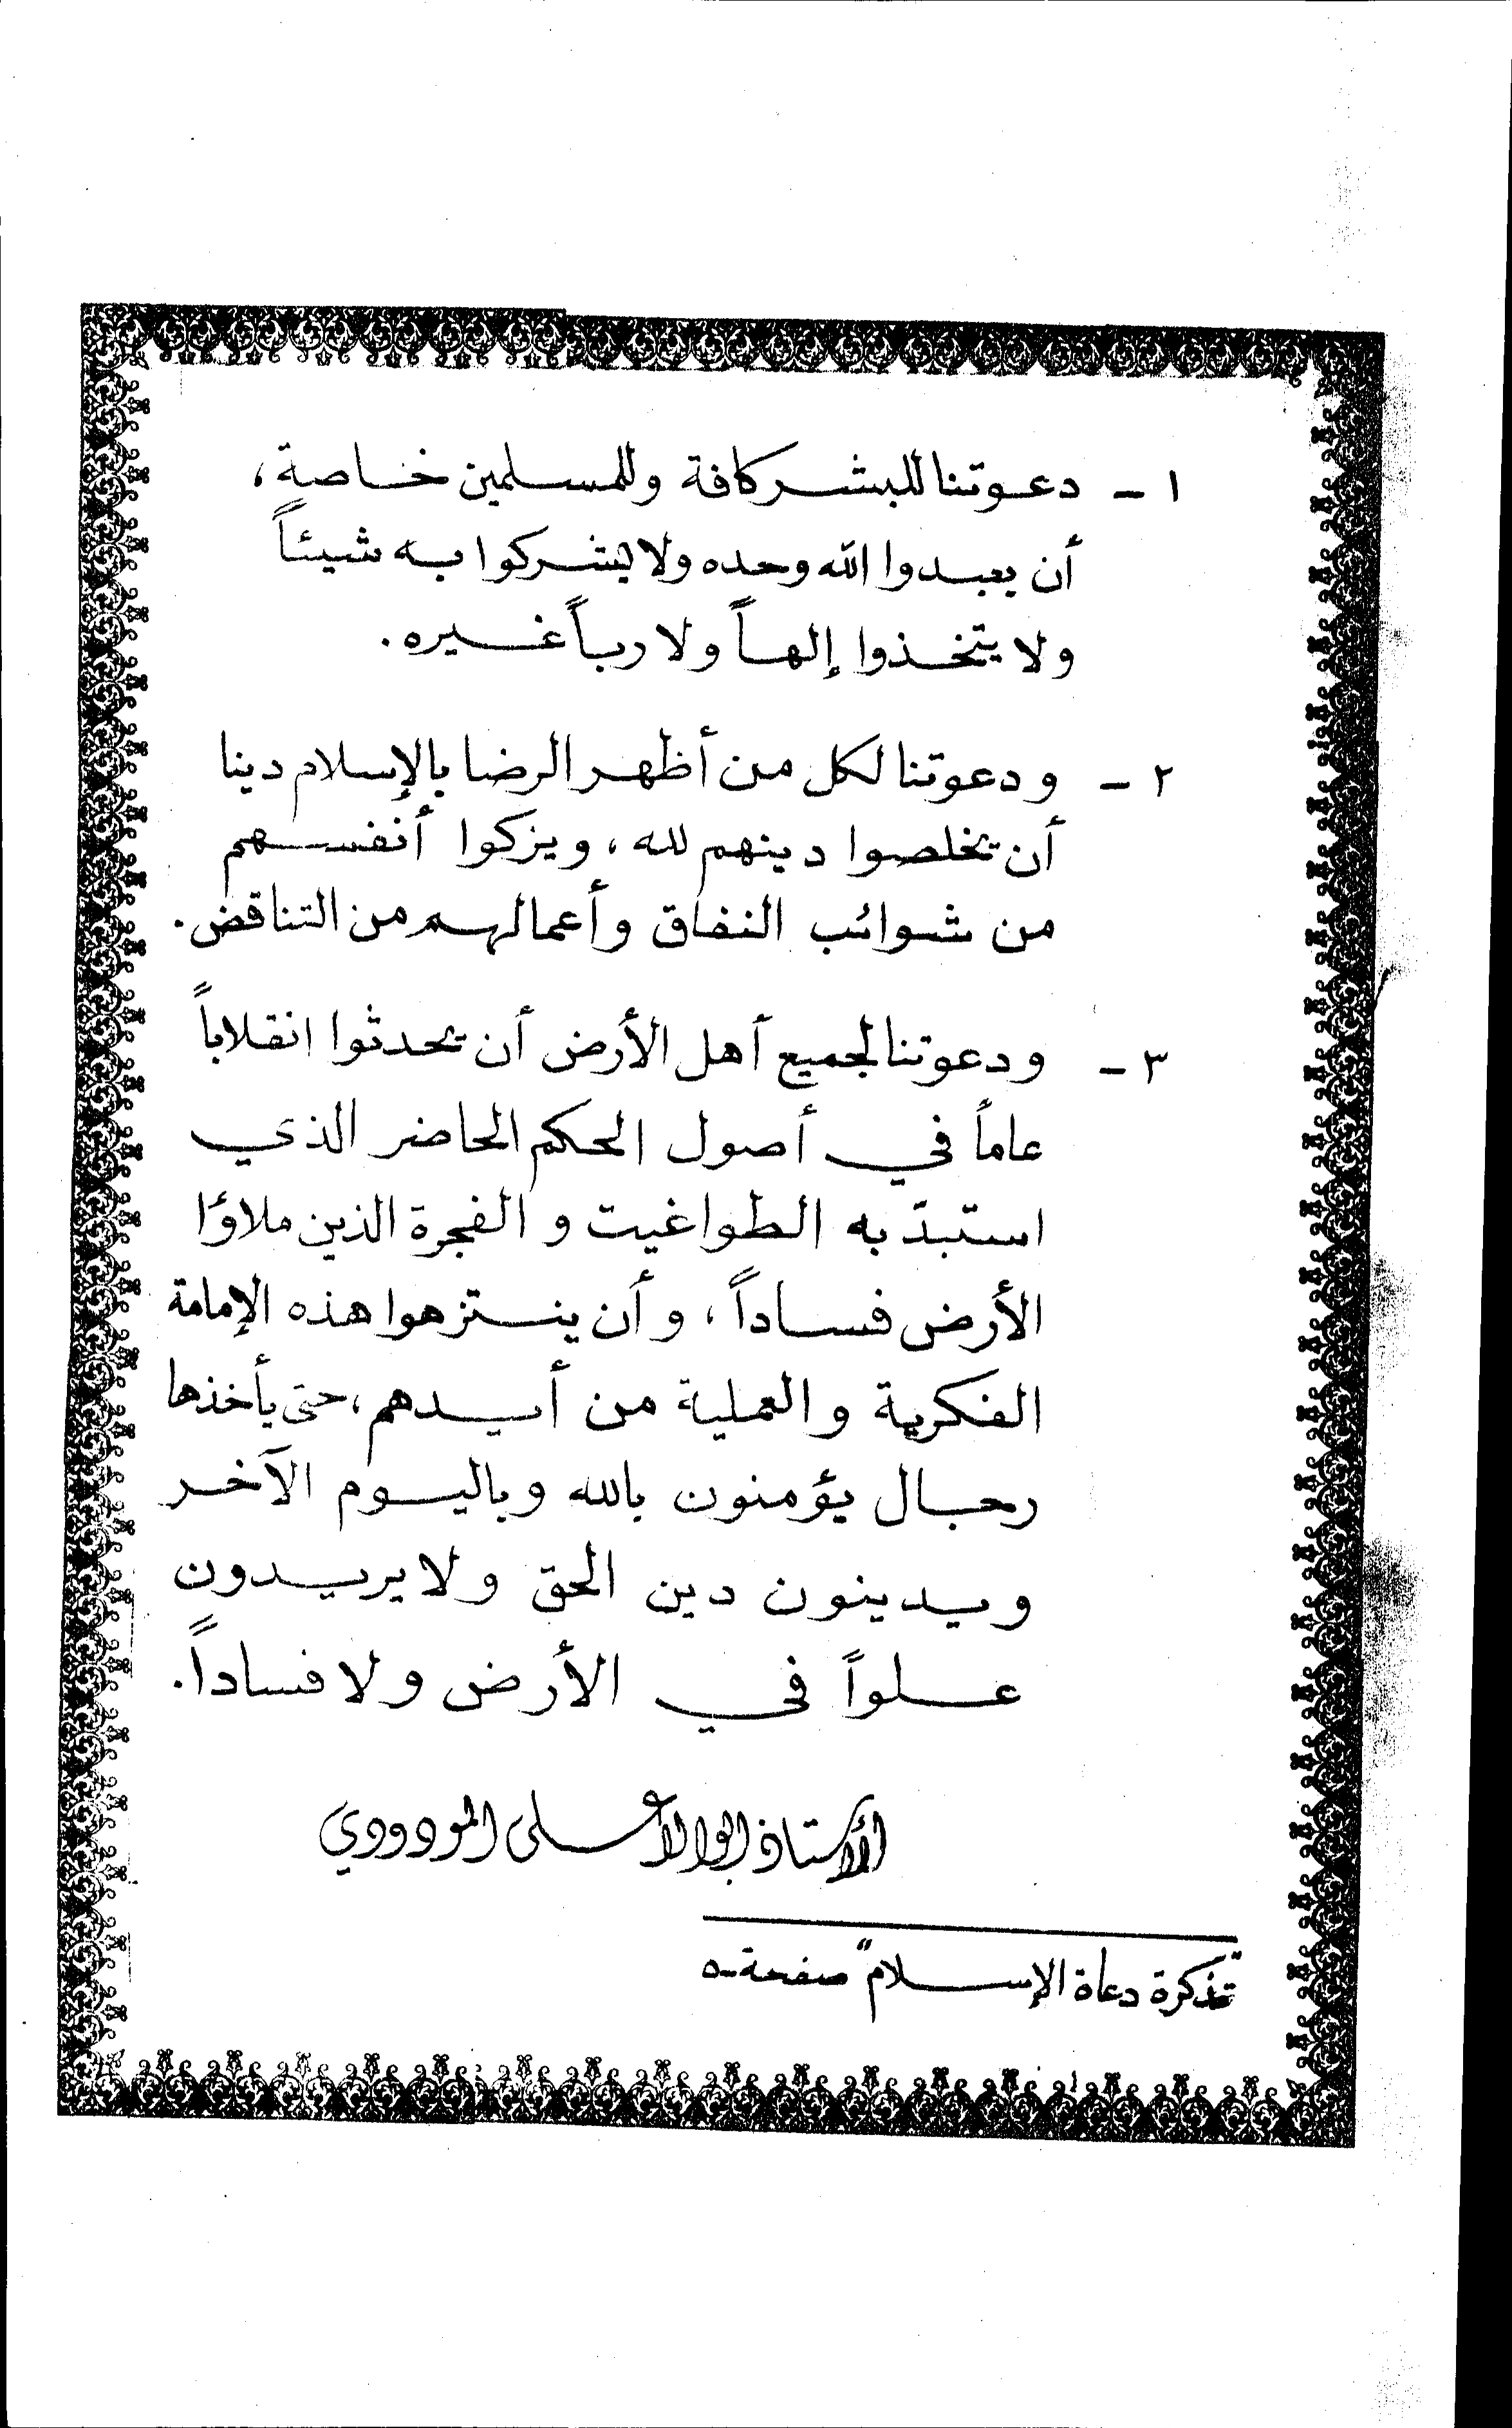 ١ - دعوتنا للبشر كافة وللمسلمين خاصة،
أن يعبدوا الله وحده ولا يشركوا به شيئاً
ولا يتخذوا إلهاً ولا رباً غيره.
٢ - ودعوتنا لكل من أظهر الرضا بالإسلام دينا
أن يخلصوا دينهم لله، ويزكوا أنفسهم
من شوائب النفاق وأعمالهم من التناقض.
٣ - ودعوتنا لجميع أهل الأرض أن يحدثوا انقلاباً
عاماً في أصول الحكم الحاضر الذي
استبدّ به الطواغيت و الفجرة الذين ملاؤا
الأرض فساداً، وأن ينتزعوا هذه الإمامة
الفكرية والعملية من أيدهم، حتى يأخذها
رجال يؤمنون بالله وباليوم الآخر
ويدينون دين الحق ولا يريدون
علواً في الأرض ولا فساداً.
الأستاذ ابو الأعلى المودودي
"تذكرة دعاة الإسلام" صفحة-٥